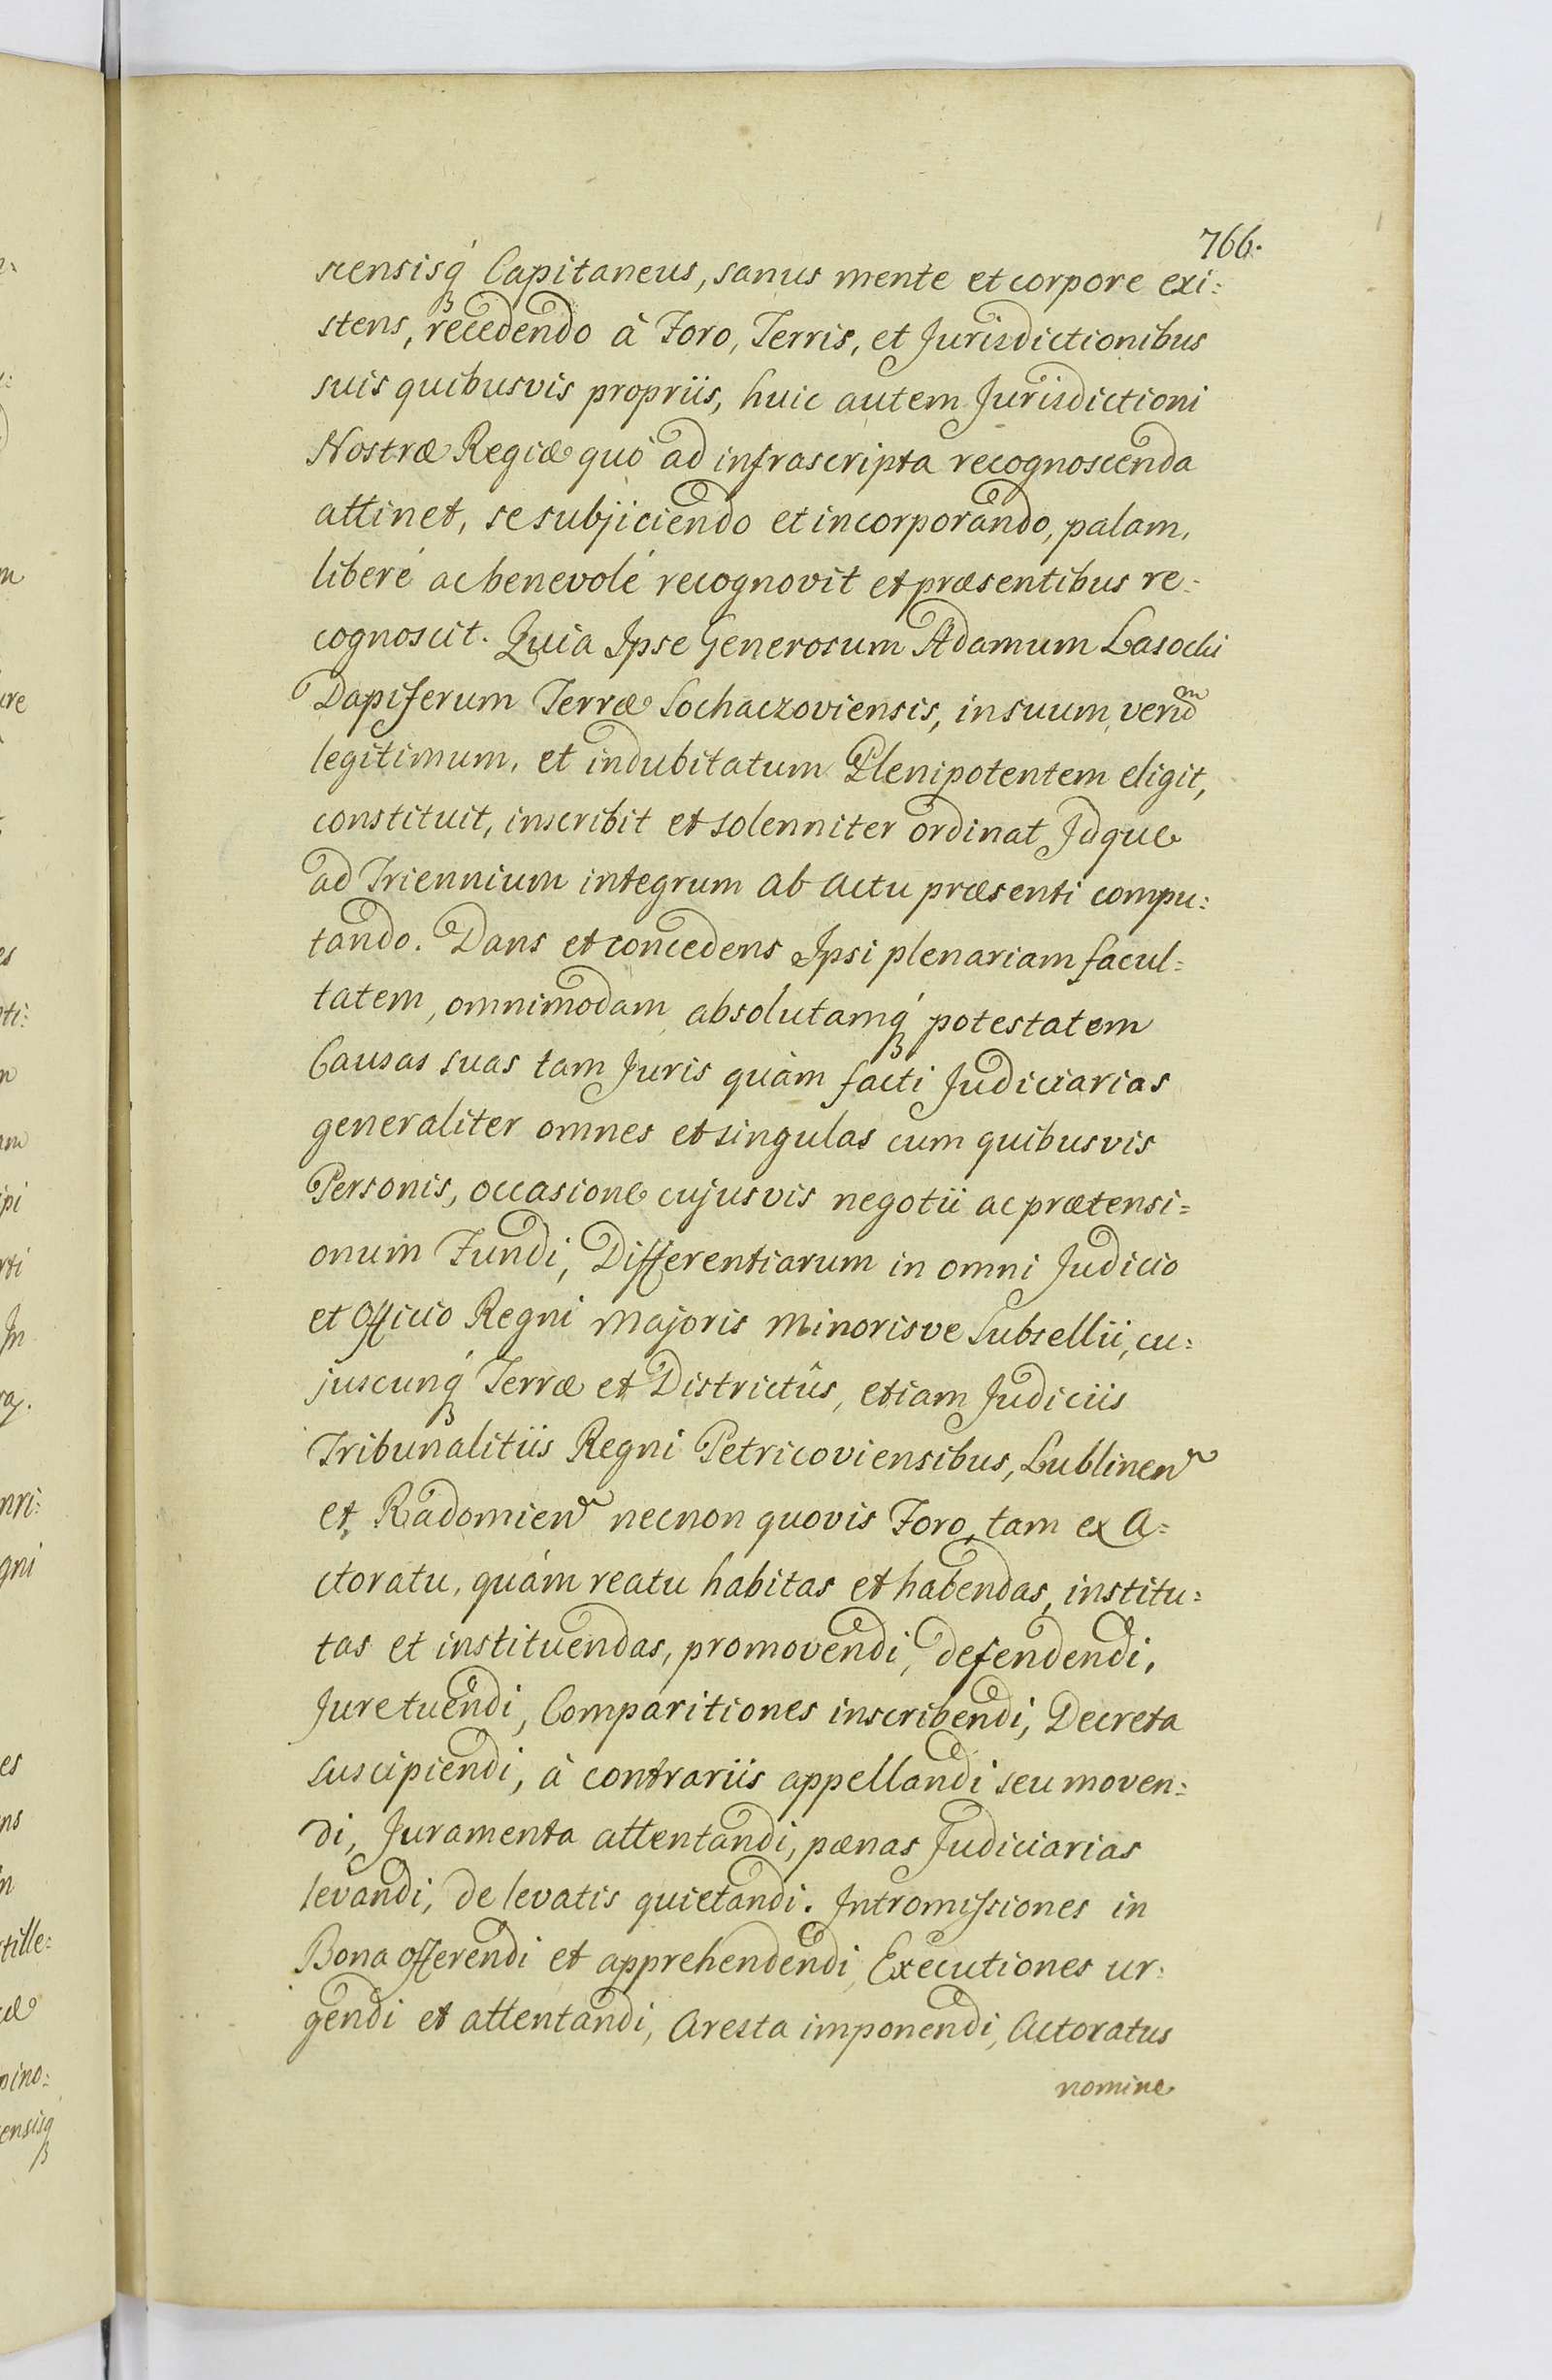 766.
scensisq́ Capitaneus, sanus mente et corpore exi:
stens, recedendo à Foro, Terris, et Jurisdictionibus
suis quibusvis propriis, huic autem Jurisdictioni
Nostræ Regiæ quò ad infrascripta recognoscenda
attinet, se subjiciendo et incorporando, palam,
liberé ac benevolé recognovit et præsentibus re:
cognoscit. Quia Ipse Generosum Adamum Lasocki
Dapiferum Terræ Sochaczoviensis, in suum, verũm
legitimum, et indubitatum Plenipotentem eligit,
constituit, inscribit et solenniter ordinat Idque
ad Triennium integrum ab actu præsenti compu:
tando. Dans et concedens Ipsi plenariam facul:
tatem, omnimodam absolutamq́ potestatem
Causas suas tam Juris quàm facti Judiciarias
generaliter omnes et singulas cum quibusvis
Personis, occasione cujusvis negotii ac prætensi=
onum Fundi, Differentiarum in omni Judicio
et Officio Regni Majoris Minorisve Subsellii, cu:
juscunq́ Terræ et Districtûs, etiam Judiciis
Tribunalitiis Regni Petricoviensibus, Lublinen
et Radomien necnon quovis Foro, tam ex A=
ctoratu, quám reatu habitas et habendas, institu:
tas et instituendas, promovendi, defendendi,
Jure tuendi, Comparitiones inscribendi, Decreta
suscipiendi, à contrariis appellandi seu moven:
di, Juramenta attentandi, pænas Judiciarias
levandi, de levatis quietandi. Intromissiones in
Bona offerendi et apprehendendi, Executiones ur:
gendi et attentandi, Aresta imponendi, Actoratus
nomine